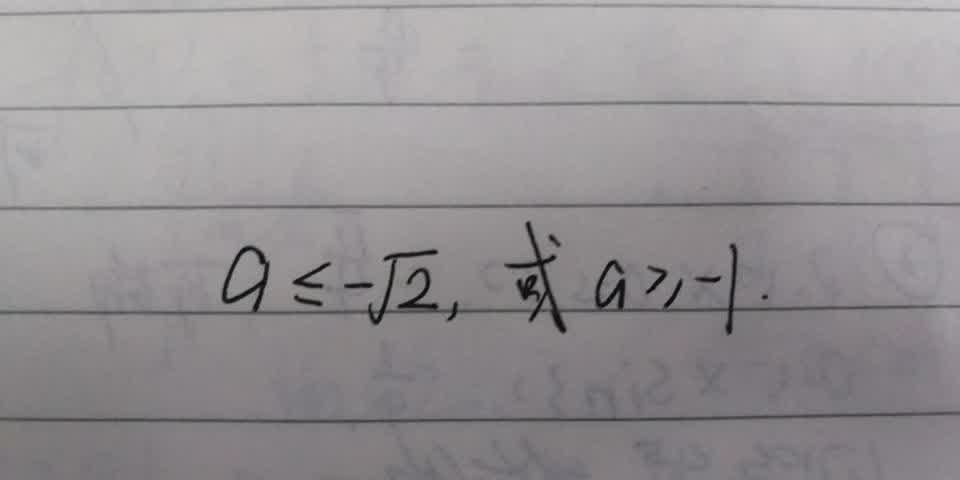 a ≤ -√2, 或 a ≥ -1.